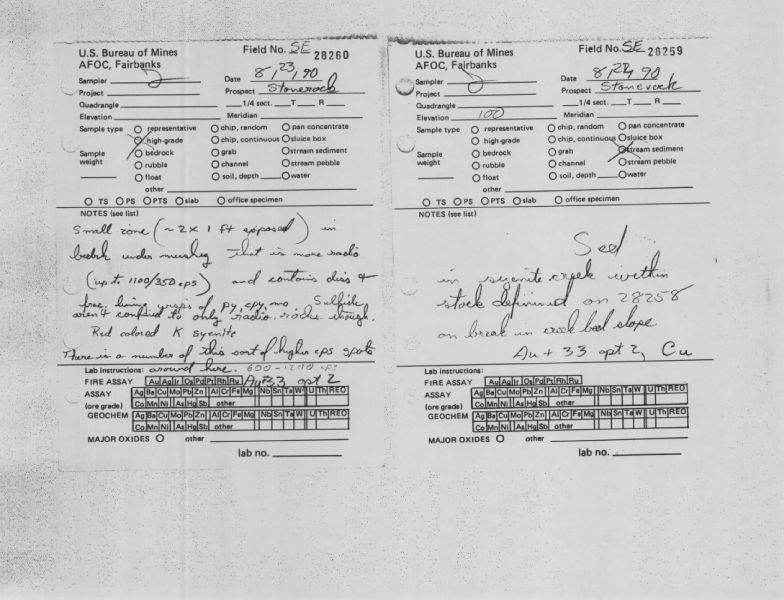 U.S. Bureau of Mines
AFOC, Fairbanks
Field No. SE 28260
Sampler
Date 8, 23, 90
Project
Prospect Stonerock
Quadrangle
1/4 sect. T R
Elevation
Meridian
Sample type
representative
high-grade
bedrock
rubble
float
other
chip, random
chip, continuous
grab
channel
soil, depth
pan concentrate
sluice box
stream sediment
stream pebble
water
Sample weight
TS PS PTS slab office specimen
NOTES (see list)
Small zone (~2 x 1 ft exposed) in
under muskeg that is more radio
(up to 1100/350 cps) and contains diss &
frac. lining wisps of py, cpy, mo. Sulfide
aren't confined to only radio. rocks though.
Red colored K syenite
There is a number of this sort of higher cps spots
Lab instructions: around here. 600-1200 cps
FIRE ASSAY Au Ag Ir Os Pd Pt Rh Ru Au+33 opt 2
ASSAY Ag Ba Cu Mo Pb Zn Al Cr Fe Mg Nb Sn Ta W U Th REO
(ore grade) Co Mn Ni As Hg Sb other
GEOCHEM Ag Ba Cu Mo Pb Zn Al Cr Fe Mg Nb Sn Ta W U Th REO
Co Mn Ni As Hg Sb other
MAJOR OXIDES other
lab no.
U.S. Bureau of Mines
AFOC, Fairbanks
Field No. SE 28259
Sampler
Date 8, 22, 90
Project
Prospect Stonerock
Quadrangle
1/4 sect. T R
Elevation 100
Meridian
Sample type
representative
high-grade
bedrock
rubble
float
other
chip, random
chip, continuous
grab
channel
soil, depth
pan concentrate
sluice box
stream sediment
stream pebble
water
Sample weight
TS PS PTS slab office specimen
NOTES (see list)
Sed
in syenite creek within
stock defined on 28258
on break in creek bed slope
Au + 33 opt 2, Cu
Lab instructions:
FIRE ASSAY Au Ag Ir Os Pd Pt Rh Ru
ASSAY Ag Ba Cu Mo Pb Zn Al Cr Fe Mg Nb Sn Ta W U Th REO
(ore grade) Co Mn Ni As Hg Sb other
GEOCHEM Ag Ba Cu Mo Pb Zn Al Cr Fe Mg Nb Sn Ta W U Th REO
Co Mn Ni As Hg Sb other
MAJOR OXIDES other
lab no.